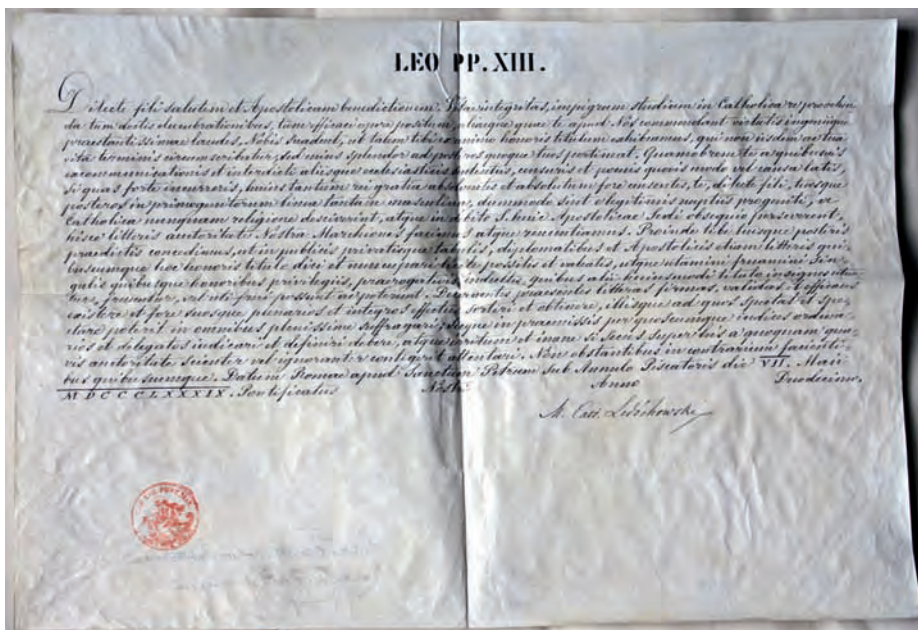 LEO PP. XIII.
Dilecte fili salutem et Apostolicam benedictionem. Vitae integritas, impigrum studium in Catholica re provehen
da tum doctis elucubrationibus, tum efficaci opere positum, aliaeque quae te apud Nos commendant virtutis ingeniique
praestantissimae laudes, Nobis suadent, ut talem tibi honoris titulum exhibeamus, qui non iisdem ac tua
vita terminis circumscribatur, sed cuius splendor ad posteros quoque tuos pertineat. Quamobrem te a quibusvis
excommunicationis et interdicti aliisque ecclesiasticis sententiis, censuris et poenis quovis modo vel causa latis,
si quas forte incurreris, huius tantum rei gratia absolventes et absolutum fore censentes, te, dilecte fili, tuosque
posteros in primogenitorum linea tantum masculina, dummodo sint e legitimis nuptiis progeniti, a
Catholica nunquam religione desciverint, atque in debito S. huic Apostolicae Sedi obsequio perseverent,
hisce litteris auctoritate Nostra Marchiones facimus atque renuntiamus. Proinde tibi tuisque posteris
praedictis concedimus, ut in publicis privatisque tabulis, diplomatibus et Apostolicis etiam litteris qui-
buscumque hoc honoris titulo dici et nuncupari licite possitis et valeatis, utque utamini fruamini sin-
gulis quibusque honoribus privilegiis, praerogativis indultis, quibus alii huiusmodi titulo insignes utun
tur, fruuntur, vel uti frui possunt ac poterunt. Decernentes praesentes litteras firmas, validas et efficaces
existere et fore suosque plenarios et integros effectus sortiri et obtinere, illisque ad quos spectat et spe-
ctare poterit in omnibus plenissime suffragari; sicque in praemissis per quoscumque iudices ordina-
rios et delegatos iudicari et definiri debere, atque irritum et inane si secus super his a quoquam qua-
vis auctoritate scienter vel ignoranter contigerit attentari. Non obstantibus in contrarium facienti-
bus quibuscumque. Datum Romae apud Sanctum Petrum sub Annulo Piscatoris die VII. Maii
MDCCCLXXXIX. Pontificatus Nostri Anno Duodecimo.
M. Card. Ledóchowski